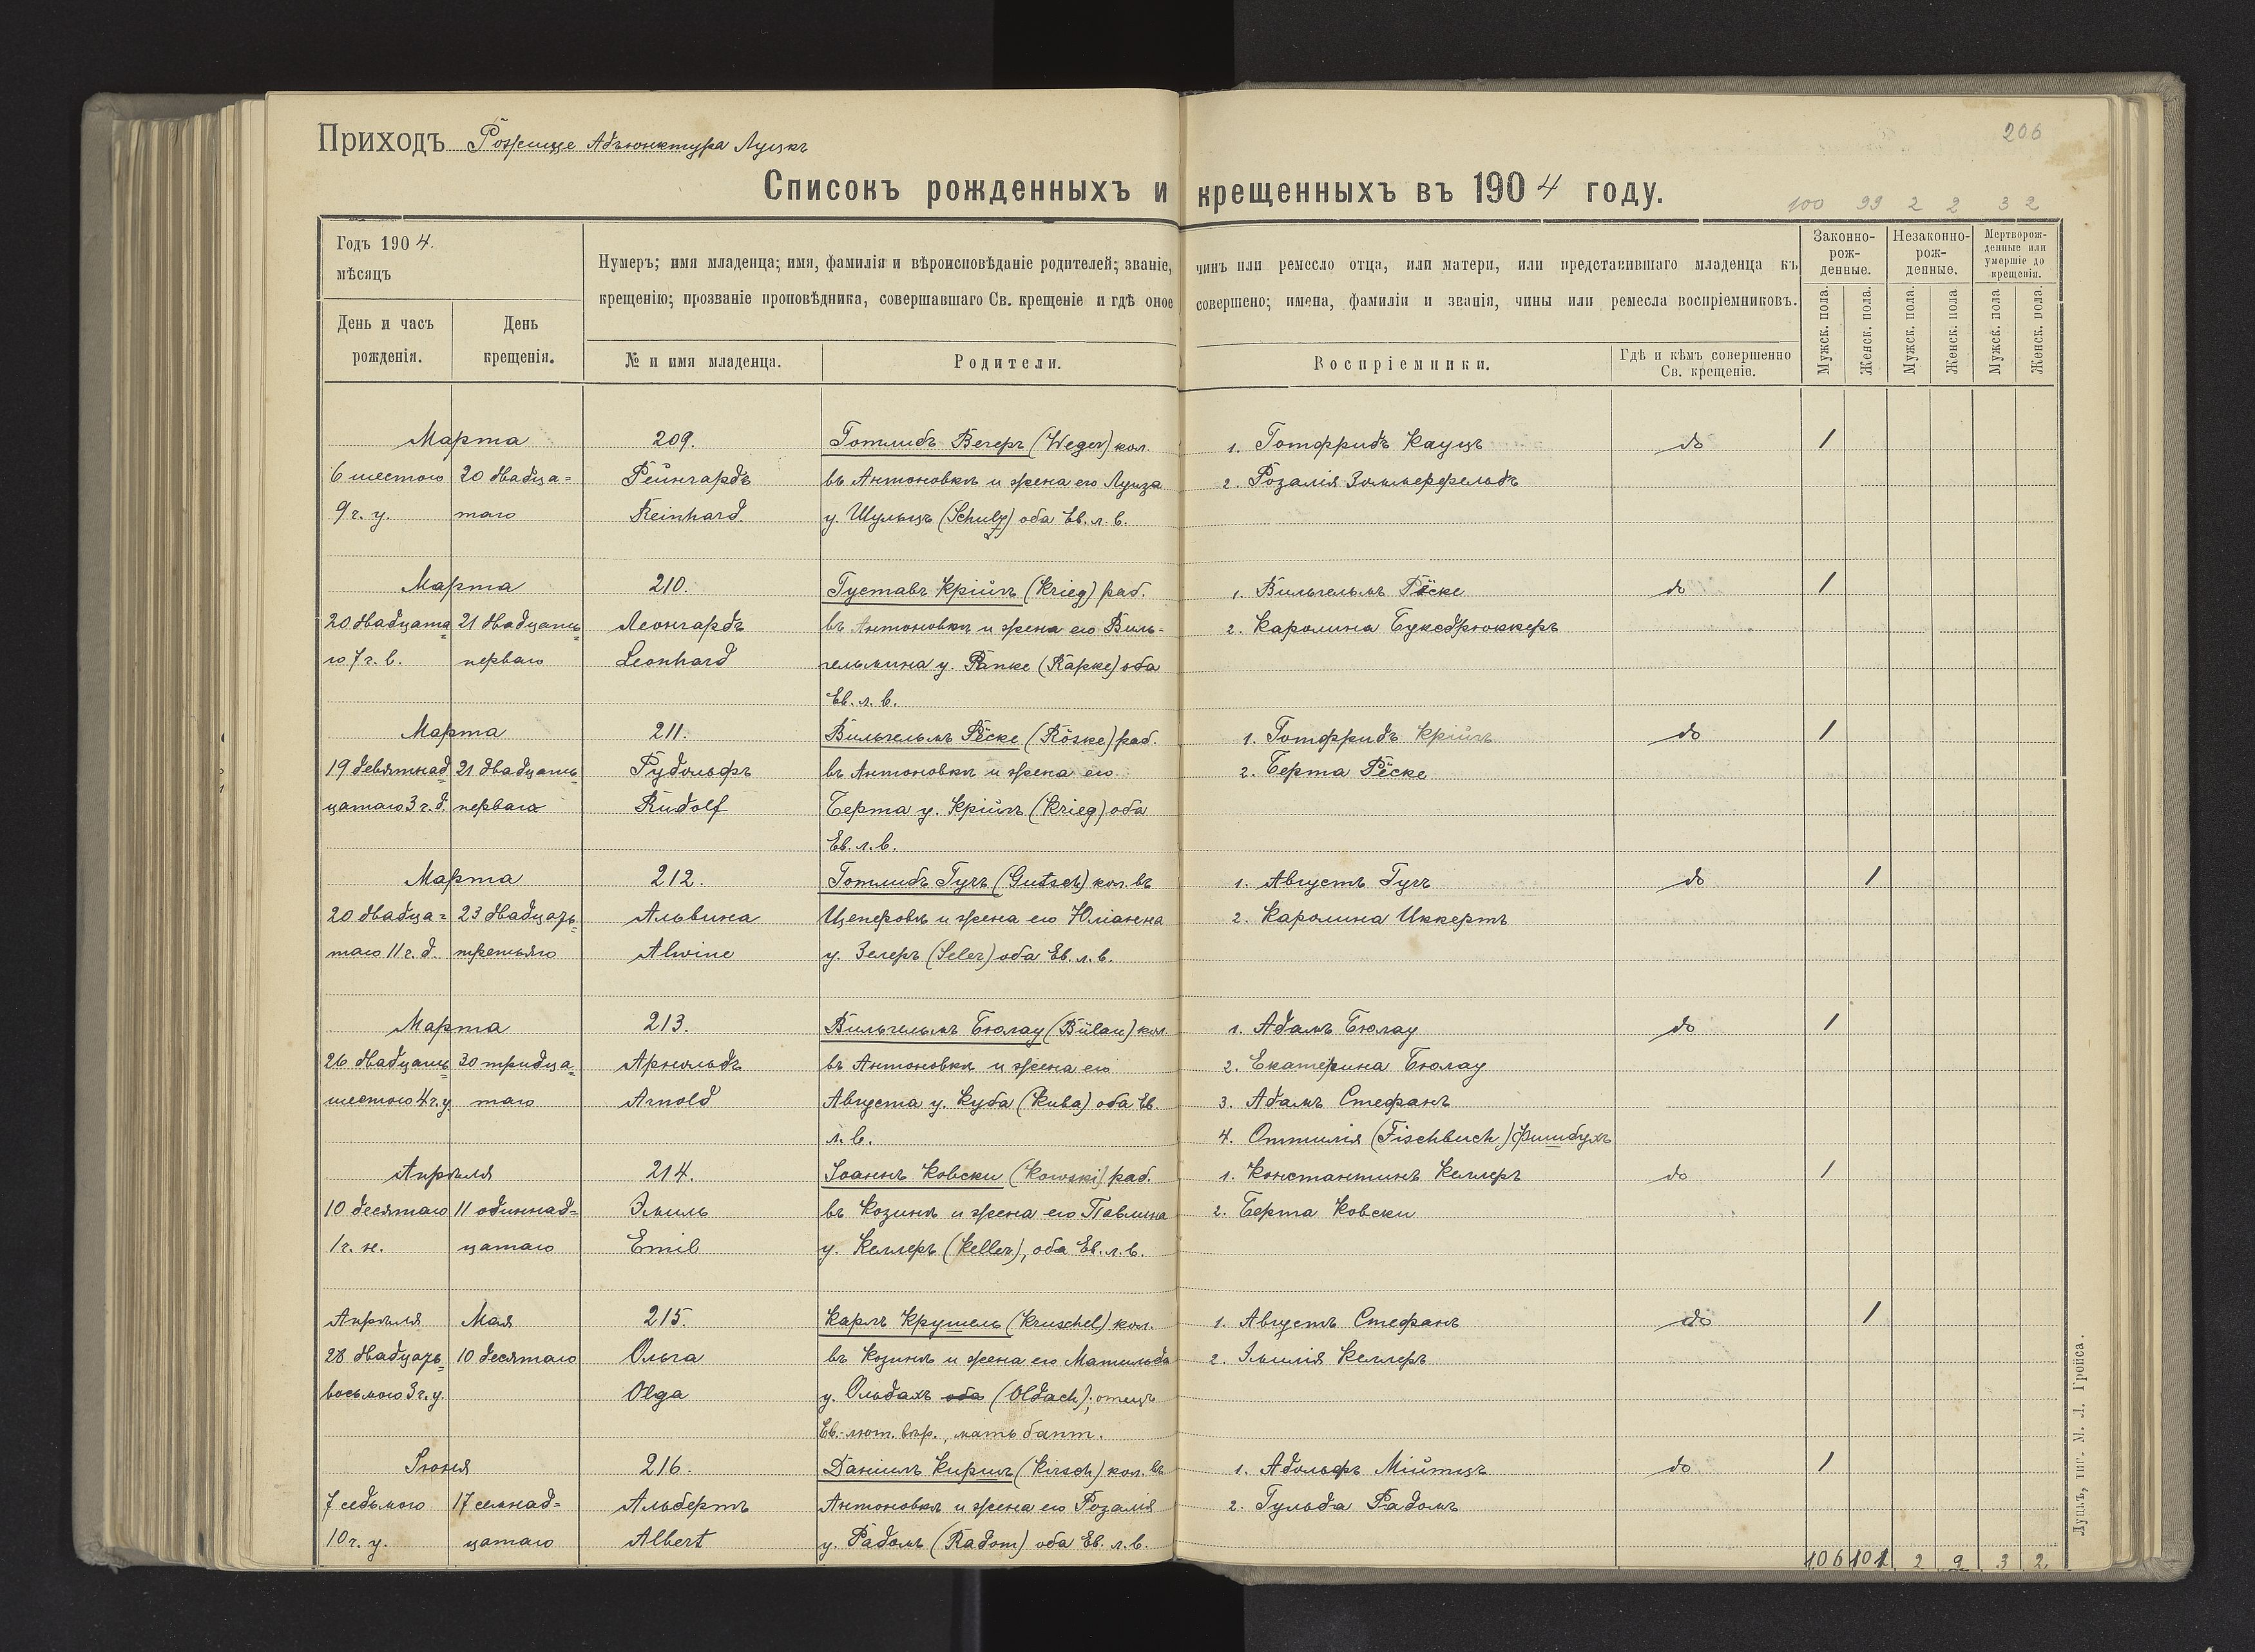 Приходъ Рожище Адъюнктура Луцкъ
206
Списокъ рожденныхъ и крещенныхъ въ 1904 году.
100 99 2 2 3 2
Годъ 1904.
мѣсяцъ
День и часъ рожденія.
День крещенія.
Нумеръ; имя младенца; имя, фамилія и вѣроисповѣданіе родителей; званіе, чинъ или ремесло отца, или матери, или представившаго младенца къ
крещенію; прозваніе проповѣдника, совершавшаго Св. крещеніе и гдѣ оное совершено; имена, фамиліи и званія, чины или ремесла воспріемниковъ.
№ и имя младенца.
Родители.
Воспріемники.
Гдѣ и кѣмъ совершенно Св. крещеніе.
Законно-рож-денные.
Незаконно-рож-денные.
Мертворож-денные или умершіе до крещенія.
Мужск. пола. Женск. пола. Мужск. пола. Женск. пола. Мужск. пола. Женск. пола.
Марта 209. Готлибъ Вегеръ (Weger) кол. 1. Готфридъ Кауцъ до 1
6 шестого 20 двадца= Рейнгардъ въ Антоновкѣ и жена его Луиза 2. Розалія Зоммерфельдъ
9 г. у. таго Reinhard. у. Шульцъ (Schulz) оба Ев. л. в.
Марта 210. Густавъ Крійгъ (Krieg) раб. 1. Вильгельмъ Рёске до 1
20 двадцата 21 двадцать Леонгардъ въ Антоновкѣ и жена его Виль- 2. Каролина Буксдрюккеръ
го 7 ч. в. перваго Leonhard гельмина у. Рапке (Rapke) оба
Ев. л. в.
Марта 211. Вильгельмъ Рёске (Röske) раб. 1. Готфридъ Крійгъ до 1
19 девятнад 21 двадцать Рудольфъ въ Антоновкѣ и жена его 2. Берта Рёске
цатаго 3 ч. д. перваго Rudolf Берта у. Крійгъ (Krieg) оба
Ев. л. в.
Марта 212. Готлибъ Гучъ (Gutsch) кол. въ 1. Августъ Гучъ до 1
20 двадца= 23 двадцать Альвина Цеперовѣ и жена его Юліанна 2. Каролина Иккертъ
таго 11 ч. д. третьяго Alwine у. Зелеръ (Seler) оба Ев. л. в.
Марта 213. Вильгельмъ Бюлау (Bülau) кол. 1. Адамъ Бюлау до 1
26 двадцать 30 тридца= Арнольдъ въ Антоновкѣ и жена его 2. Екатерина Бюлау
шестого 4 ч. у. таго Arnold Августа у. Куба (Kuba) оба Ев. 3. Адамъ Стефанъ
л. в. 4. Оттилія (Fischbuch) Фишбухъ
Апрѣля 214. Іоаннъ Ковски (Kowski) раб. 1. Константинъ Келлеръ до 1
10 десятаго 11 одиннад= Эмиль въ Козинѣ и жена его Павлина 2. Берта Ковски
1 ч. н. цатаго Emil у. Келлеръ (Keller), оба Ев. л. в.
Апрѣля Мая 215. Карлъ Крушель (Kruschel) кол. 1. Августъ Стефанъ до 1
28 двадцать 10 десятаго Ольга въ Козинѣ и жена его Матильда 2. Эмилія Келлеръ
восьмого 3 ч. у. Olga у. Ольдахъ оба (Oldach); отецъ
Ев.-лют. вѣр., мать бапт.
Іюня 216. Даніилъ Киршъ (Kirsch) кол. въ 1. Адольфъ Мійтцъ до 1
7 седьмого 17 семнад= Альбертъ Антоновкѣ и жена его Розалія 2. Гульда Радомъ
10 ч. у. цатаго Albert у. Радомъ (Radom) оба Ев. л. в.
106 101 2 2 3 2.
Луцкъ, тип. М. Л. Гройса.